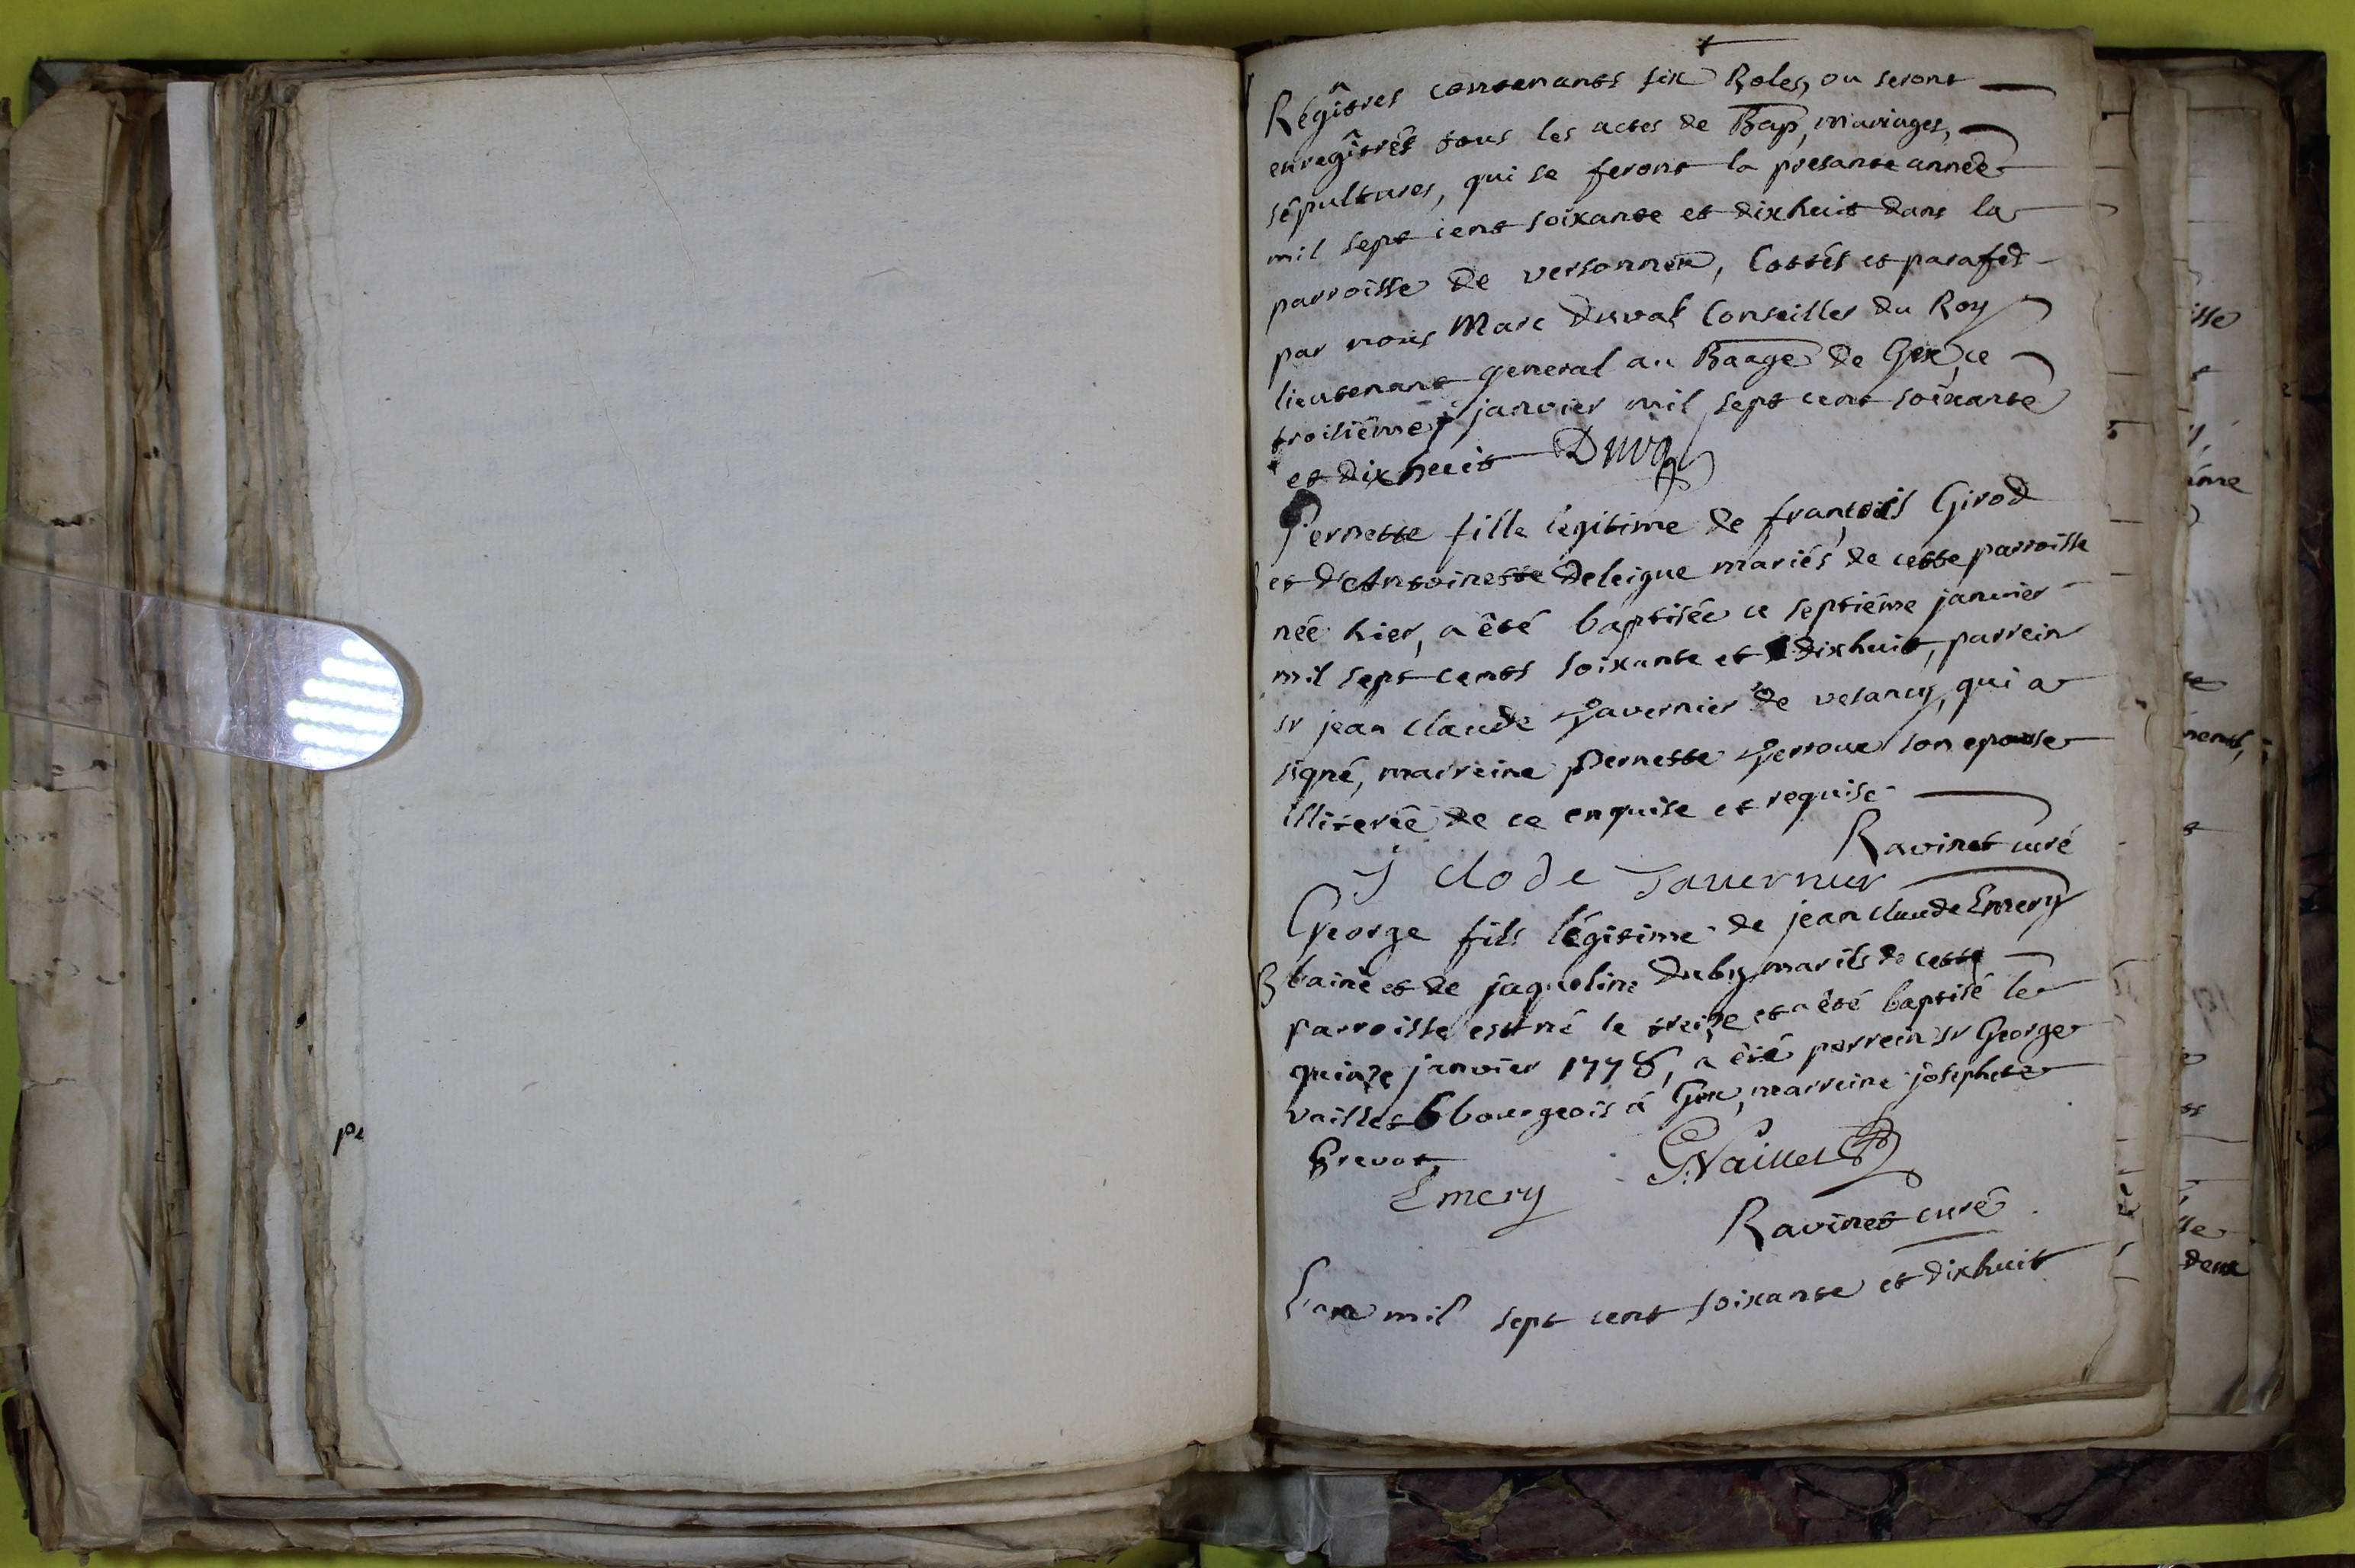 Regîtres contenants six Roles, ou seront
enregîtrés tous les actes de Bap, mariages,
sépultures, qui se feront la presante année
mil sept cent soixante et dixhuit dans la
parroisse de versonnex, Cottés et parafés
par nous Marc Duval Conseiller du Roy
lieutenant general au Baage de Gex, ce
troisiême janvier mil sept cent soixante
et dixhuit Duval
Pernette fille légitime de françois Girod
et d'Antoinette Deleigue mariés de cette parroisse
née hier, a êté baptisée ce septiéme janvier
mil sept cents soixante et dixhuit, parrein
sr jean Claude Tavernier de vesancy, qui a
signé, marreine Pernette Perroux son epouse
illiterée de ce enquise et requise
Ravinet curé
J clode Tavernier
George fils légitime de jean Claude Emery
B
et de jaqueline Duby mariés de cette
parroisse est né le treize et a êté baptisé le
quinze janvier 1778, a êté parrein sr George
vaillet bourgeois à Gex, marreine josephete
Prevot,
G. Vaillet
Emery
Ravinet curé
L'an mil sept cent soixante et dixhuit
pa
isse
deux